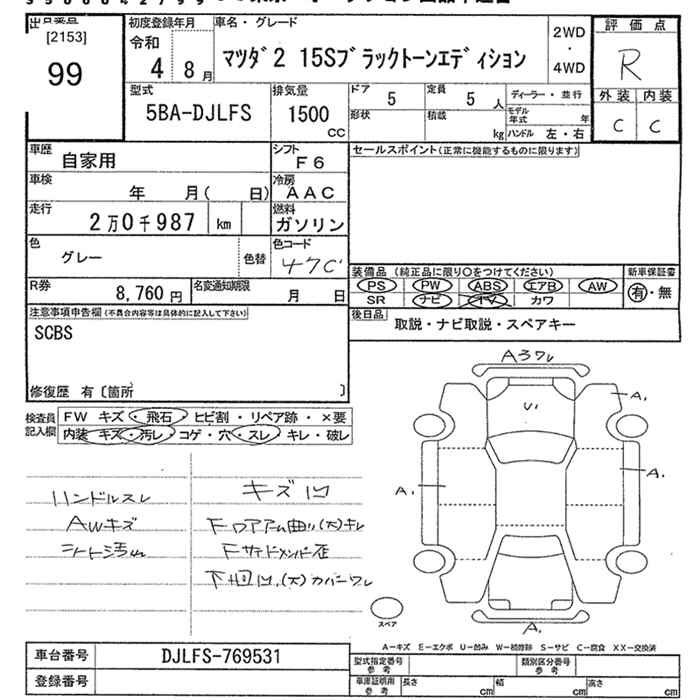 [2153]
99
初度登録年月
令和
4 8月
車名・グレード
マツダ2 15Sブラックトーンエディション
2WD
・
4WD
評価点
R
外装 内装
C C
型式
5BA-DJLFS
排気量
1500
CC
ドア
5
定員
5 人
形状
積載
kg
ディーラー・並行
モデル年式
年
ハンドル 左・右
車歴
自家用
シフト
F6
車検
年 月( 日)
冷房
AAC
走行
2万0千987 km
燃料
ガソリン
色
グレー
色替
色コード
47C
R券
8,760円
名変通知期限
月 日
セールスポイント(正常に機能するものに限ります)
装備品 (純正品に限り○をつけてください)
PS PW ABS エアB AW
SR ナビ TV カワ
新車保証書
有・無
後日品
取説・ナビ取説・スペアキー
注意事項申告欄(不具合内容等は具体的に記入して下さい)
SCBS
修復歴 有〔箇所 〕
検査員記入欄
FW キズ・飛石・ヒビ割・リペア跡・×要
内装 キズ・汚レ・コゲ・穴・スレ・キレ・破レ
ハンドルスレ
AWキズ
シート汚レ
キズ凹
Fロアアーム曲り(大)キレ
Fサイドメンバー歪
下回凹(大)カバーワレ
A3ワレ
U1
A1
A1
A1
A1
スペア
A-キズ E-エクボ U-凹み W-補修跡 S-サビ C-腐食 XX-交換済
車台番号
DJLFS-769531
登録番号
型式指定番号
参考
類別区分番号
参考
車庫証明用
参考
長さ cm
幅 cm
高さ cm